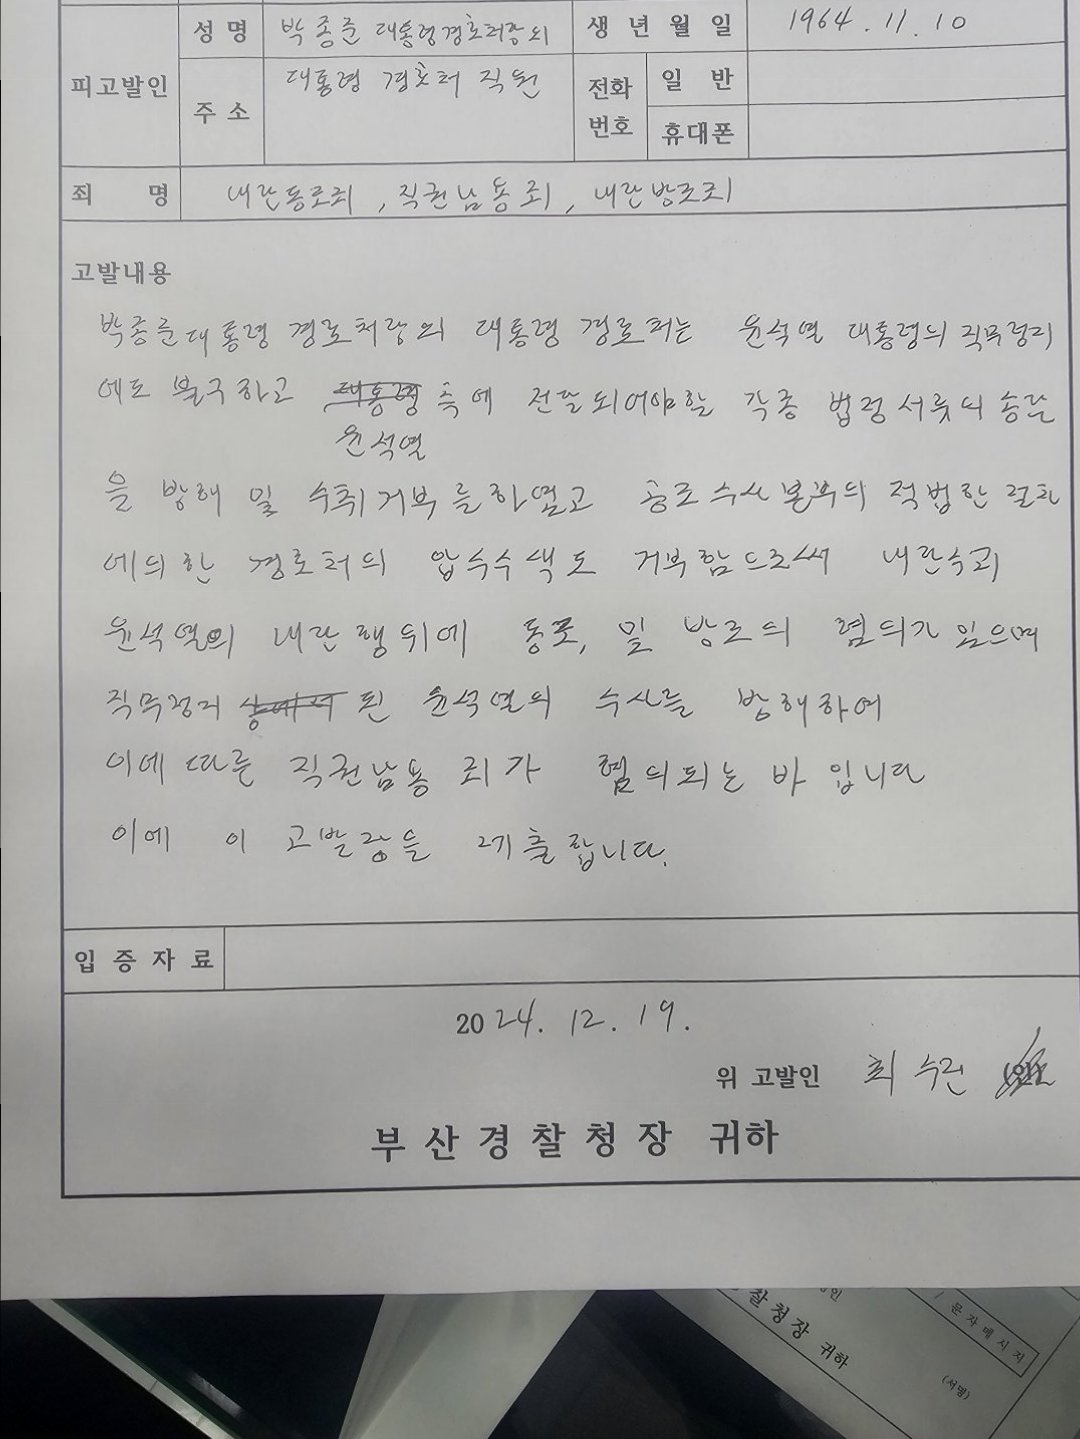 성 명 박종준 대통령경호처장외 생 년 월 일 1964. 11. 10
피고발인 대통령 경호처 직원 전화 일 반
주 소 번호 휴대폰
죄 명 내란동조죄, 직권남용죄, 내란방조죄
고발내용
박종준대통령 경호처장외 대통령 경호처는 윤석열 대통령의 직무정지
에도 불구하고 대통령 측에 전달되어야할 각종 법정서류의 송달
윤석열
을 방해 및 수취거부를하였고 공조수사본부의 적법한 절차
에의한 경호처의 압수수색도 거부함으로써 내란수괴
윤석열의 내란행위에 동조, 및 방조의 혐의가 있으며
직무정지 상에서 된 윤석열의 수사를 방해하여
이에 따른 직권남용 죄가 혐의되는 바 입니다
이에 이 고발장을 제출합니다.
입 증 자 료
2024. 12. 19.
위 고발인 최수린 (인)
부 산 경 찰 청 장 귀하
찰 청 장 귀하
문자메시지
(서명)